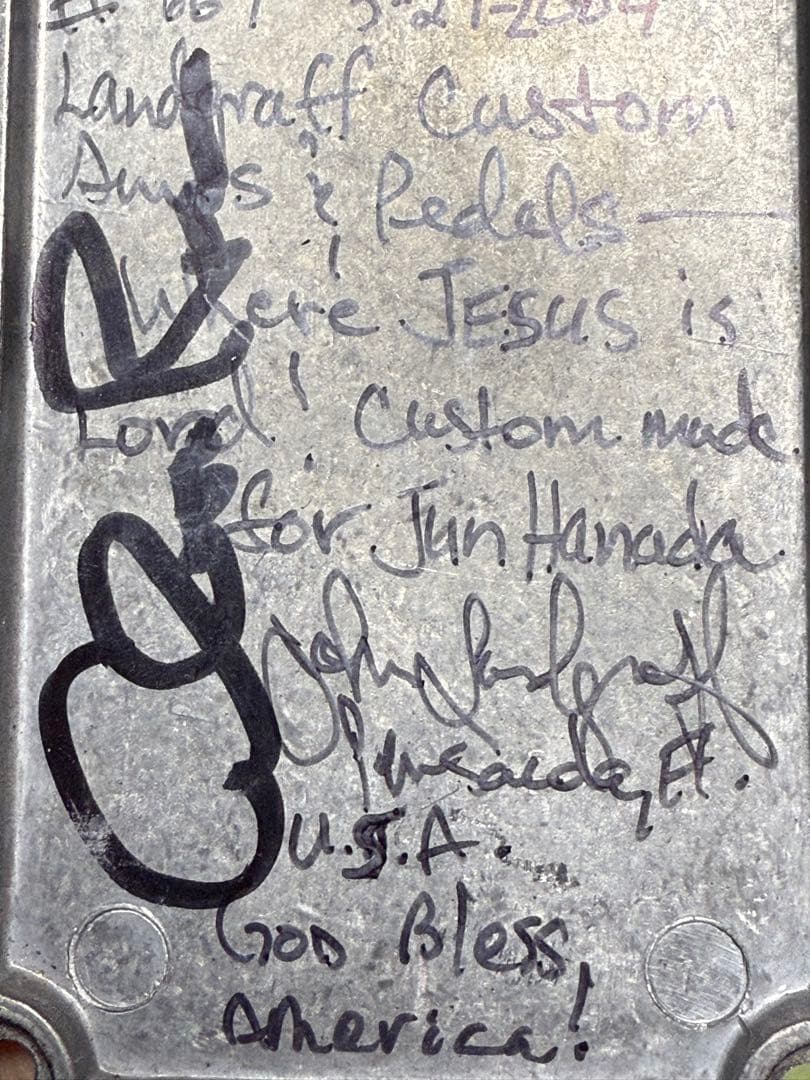 # 667 5-21-2004
Landgraff Custom
Amps & Pedals
Where JESUS is
Lord! Custom made
for Jun Hanada.
John Landgraff
Pensacola, Fl.
U.S.A.
GOD Bless
America!